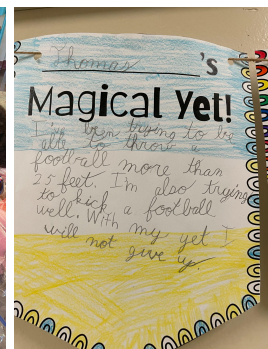 Thomas 's
Magical Yet!
I'v been trying to be
able to throw a
football more than
25 feet. I'm also trying
to kick a football
well. With my yet I
will not give up.